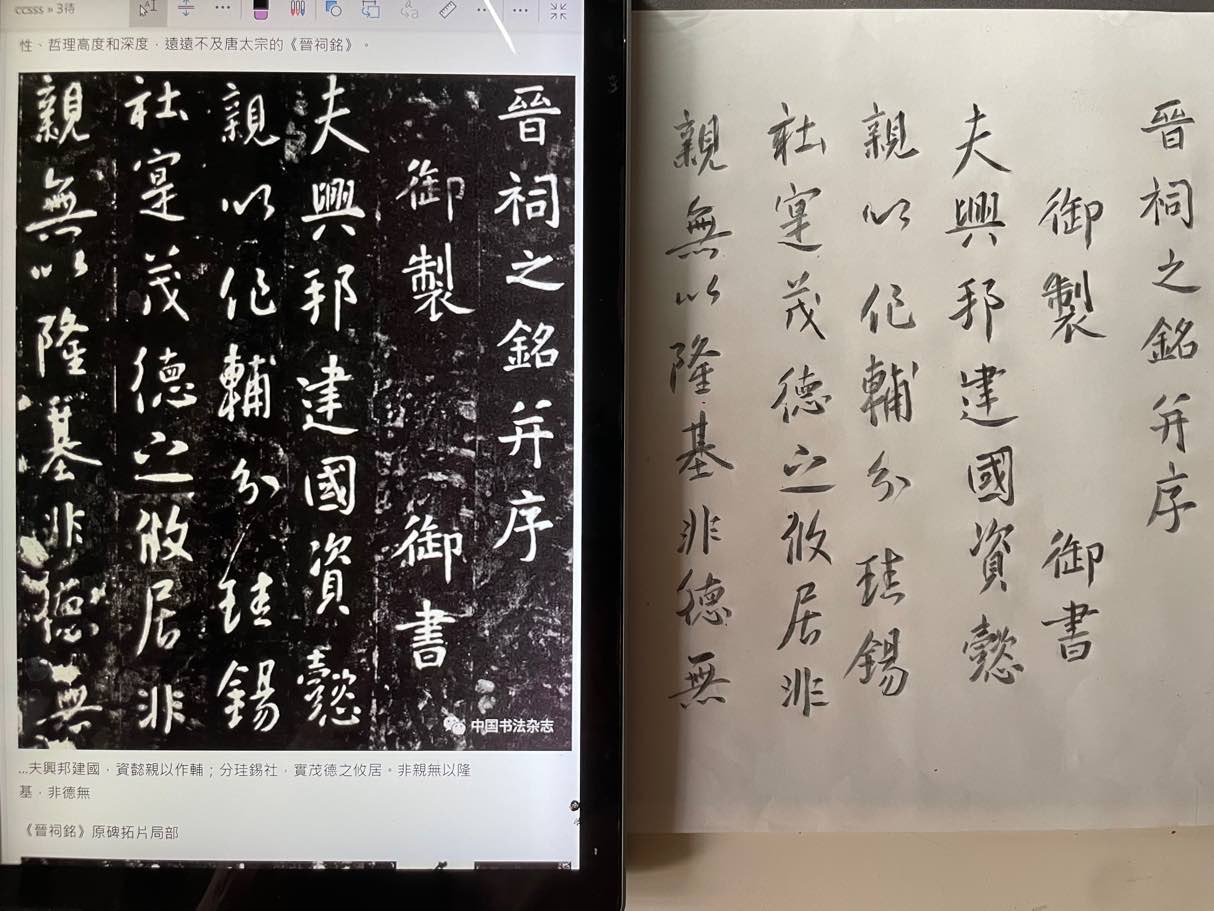 ccsss » 3待
性、哲理高度和深度，遠遠不及唐太宗的《晉祠銘》。
晉祠之銘并序
御製 御書
夫興邦建國資懿
親以作輔分珪錫
社寔茂德之攸居非
親無以隆基非德無
中国书法杂志
...夫興邦建國，資懿親以作輔；分珪錫社，實茂德之攸居。非親無以隆
基，非德無
《晉祠銘》原碑拓片局部
晉祠之銘并序
御製 御書
夫興邦建國資懿
親以作輔分珪錫
社寔茂德之攸居非
親無以隆基非德無